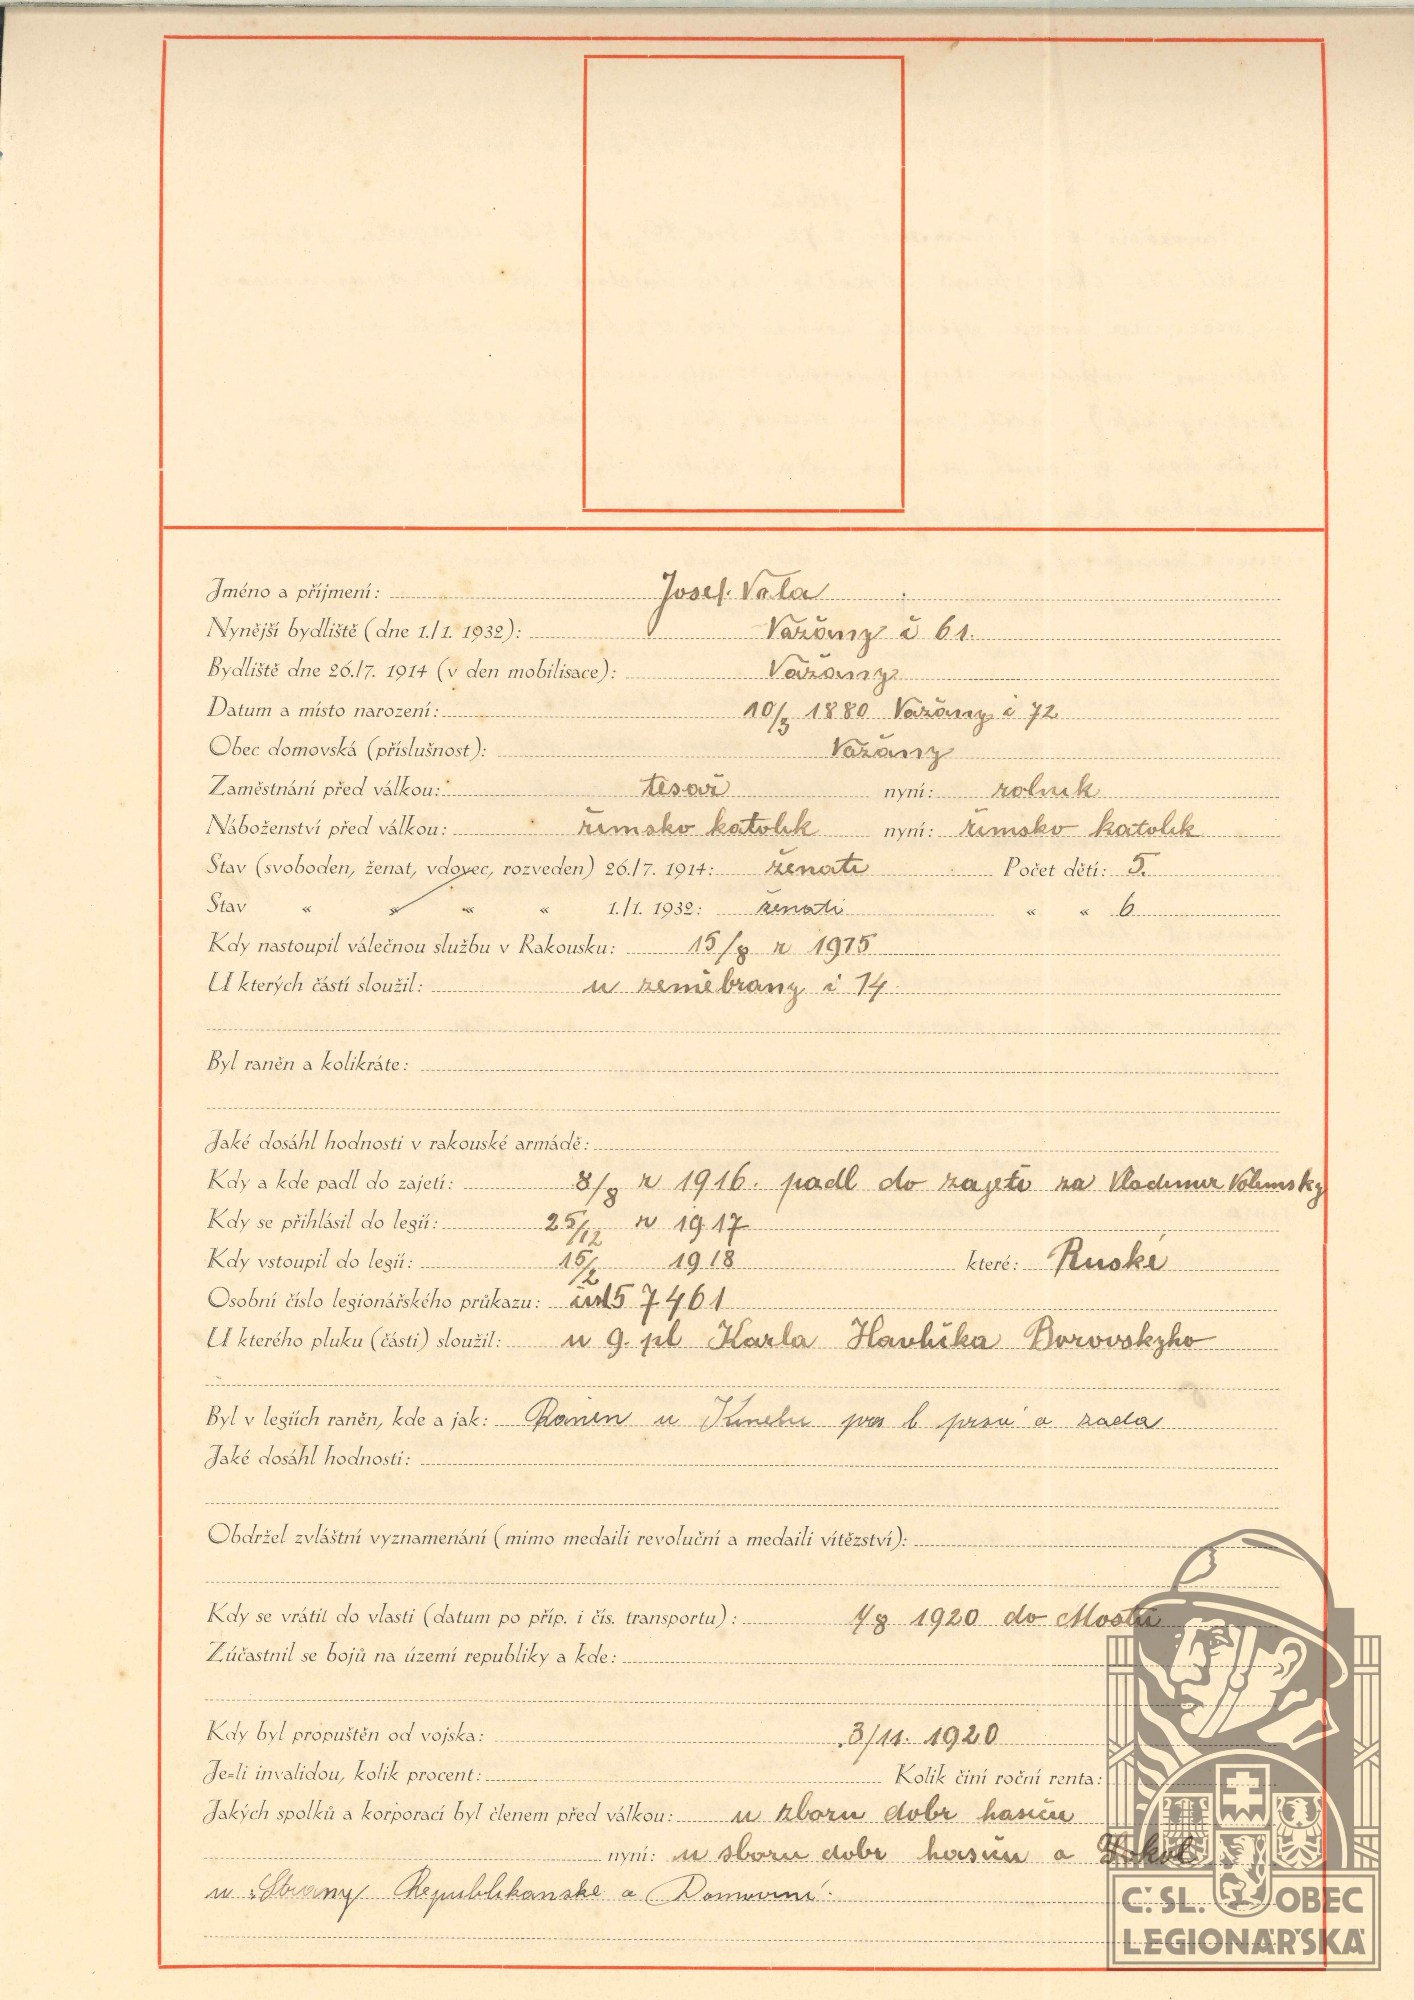 Jméno a příjmení: Josef Vála
Nynější bydliště (dne 1./1. 1932): Vážany č 61.
Bydliště dne 26./7. 1914 (v den mobilisace): Vážany
Datum a místo narození: 10/3 1880 Vážany č 72
Obec domovská (příslušnost): Vážany
Zaměstnání před válkou: tesař nyní: rolnik
Náboženství před válkou: řimsko katolik nyní: řimsko katolik
Stav (svoboden, ženat, vdovec, rozveden) 26./7. 1914: ženatí Počet dětí: 5.
Stav « « « « 1./1. 1932: ženatí « « 6
Kdy nastoupil válečnou službu v Rakousku: 15/8 r 1915
U kterých částí sloužil: u zeměbrany č 14
Byl raněn a kolikráte:
Jaké dosáhl hodnosti v rakouské armádě:
Kdy a kde padl do zajetí: 8/8 r 1916. padl do zajetí za Vladimir Volinsky
Kdy se přihlásil do legií: 25/12 r 1917
Kdy vstoupil do legií: 15/2 1918 které: Ruské
Osobní číslo legionářského průkazu: 57461
U kterého pluku (části) sloužil: u 9. pl Karla Havlička Borovskyho
Byl v legiích raněn, kde a jak: Raněn u prsů a zada
Jaké dosáhl hodnosti:
Obdržel zvláštní vyznamenání (mimo medaili revoluční a medaili vítězství):
Kdy se vrátil do vlasti (datum po příp. i čís. transportu): 1/8 1920 do Mostu
Zúčastnil se bojů na území republiky a kde:
Kdy byl propuštěn od vojska: 3/11. 1920
Je=li invalidou, kolik procent: Kolik činí roční renta:
Jakých spolků a korporací byl členem před válkou: u zboru dobr hasiču
nyní: u sboru dobr hasiču a Sokol
u Strany Republikanske a Domovini.
Č. SL. OBEC
LEGIONÁŘSKÁ